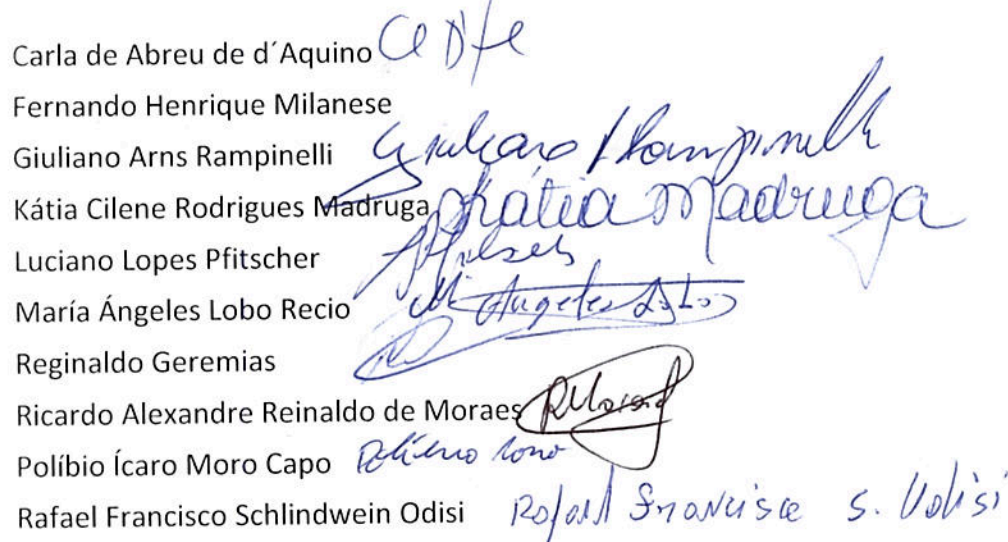 Carla de Abreu de d´Aquino
Fernando Henrique Milanese
Giuliano Arns Rampinelli Giuliano Rampinelli
Kátia Cilene Rodrigues Madruga Kátia Madruga
Luciano Lopes Pfitscher
María Ángeles Lobo Recio Mª Angeles Lobo
Reginaldo Geremias
Ricardo Alexandre Reinaldo de Moraes
Políbio Ícaro Moro Capo Políbio Moro
Rafael Francisco Schlindwein Odisi Rafael Francisco S. Odisi